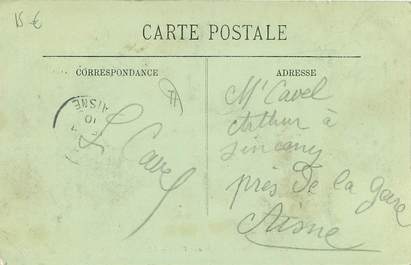 15 €
CARTE POSTALE
CORRESPONDANCE
ADRESSE
AISNE
10
L Cavel
Mr Cavel
Arthur à
Sinceny
près de la gare
Aisne